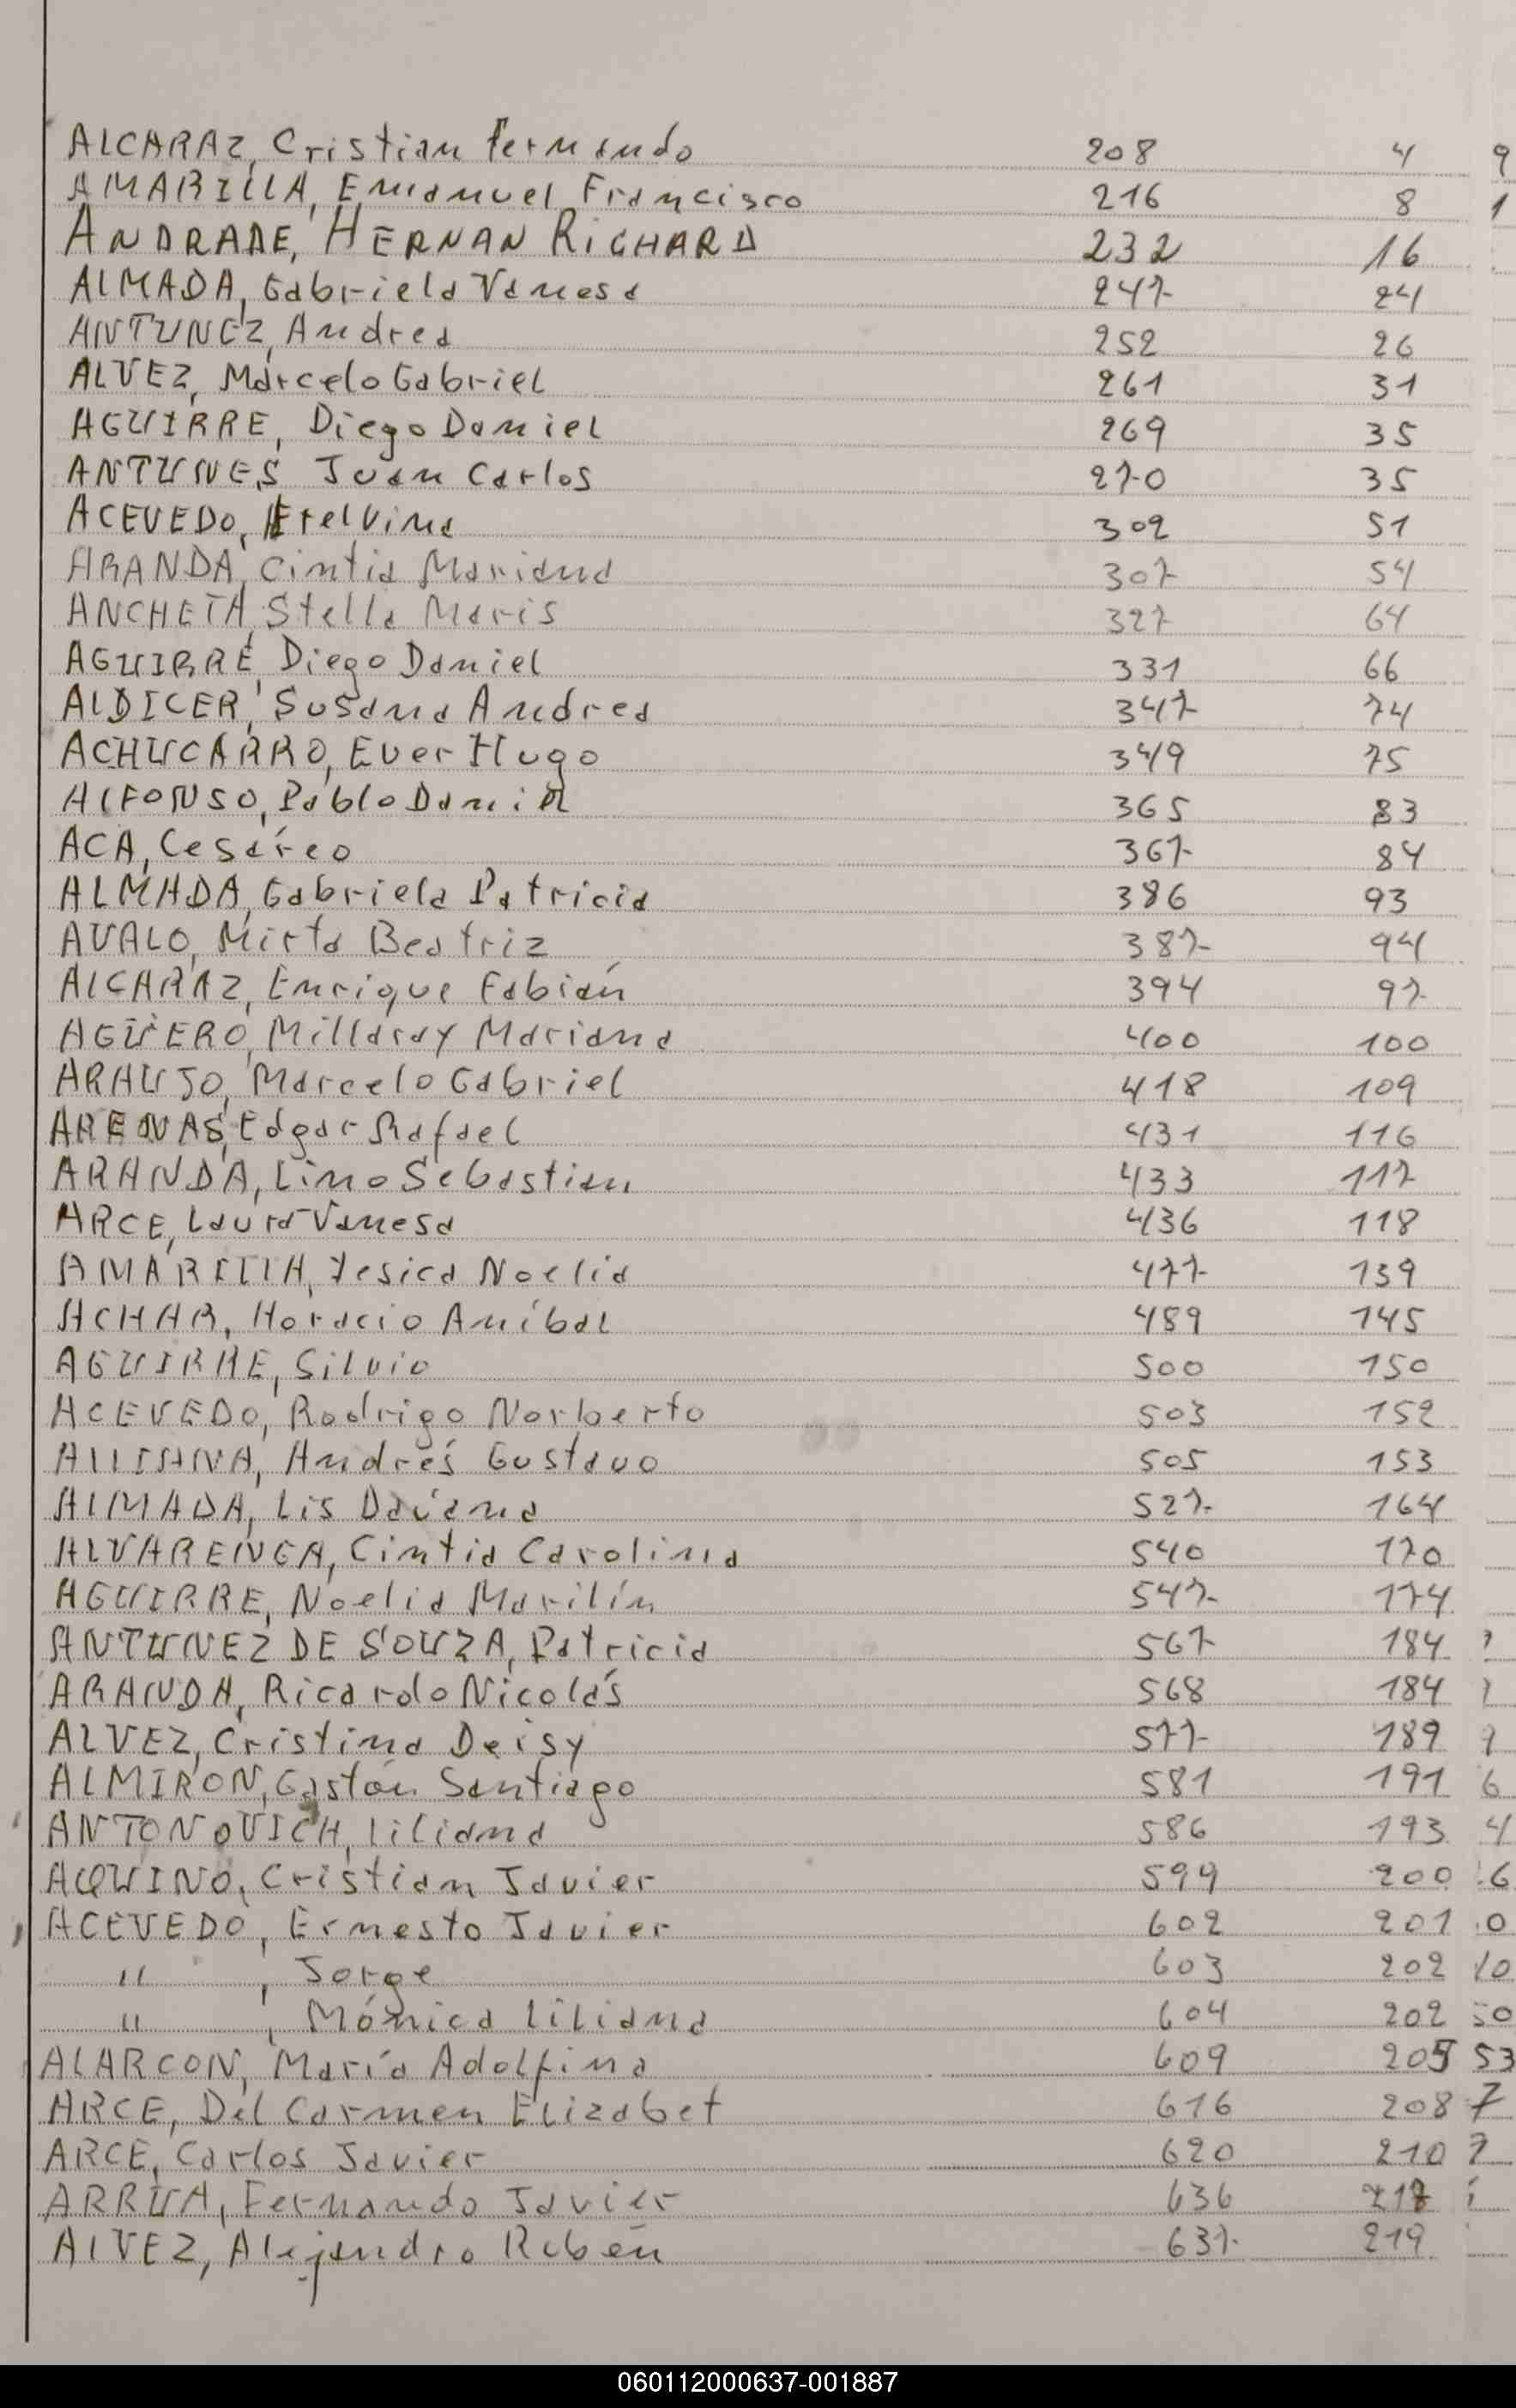 ALCARAZ, Cristian Fernando 208 4 9
AMARILLA, Emanuel Francisco 216 8 1
ANDRADE, HERNAN RICHARD 232 16
ALMADA, Gabriela Vanesa 247 24
ANTUNEZ, Andrea 252 26
ALVEZ, Marcelo Gabriel 261 31
AGUIRRE, Diego Daniel 269 35
ANTUNES Juan Carlos 270 35
ACEVEDO, Etelvina 302 51
ARANDA, Cintia Mariana 307 54
ANCHETA Stella Maris 327 64
AGUIRRE, Diego Daniel 331 66
ALDICER, Susana Andrea 347 74
ACHUCARRO, Ever Hugo 349 75
ALFONSO, Pablo Daniel 365 83
ACA, Cesáreo 367 84
ALMADA, Gabriela Patricia 386 93
AVALO, Mirta Beatriz 387 94
ALCARAZ, Enrique Fabián 394 97
AGÜERO, Millaray Mariana 400 100
ARAUJO, Marcelo Gabriel 418 109
ARENAS, Edgar Rafael 431 116
ARANDA, Lino Sebastian 433 117
ARCE, Laura Vanesa 436 118
AMARILLA, Yesica Noelia 477 139
ACHAR, Horacio Aníbal 489 145
AGUIRRE, Silvio 500 150
ACEVEDO, Rodrigo Norberto 503 152
ALLIANA, Andrés Gustavo 505 153
ALMADA, Lis Daiana 527 164
ALVARENGA, Cintia Carolina 540 170
AGUIRRE, Noelia Marilín 547 174
ANTUNEZ DE SOUZA, Patricia 567 184
ARANDA, Ricardo Nicolás 568 184
ALVEZ, Cristina Deisy 577 189
ALMIRON, Gastón Santiago 581 191 6
ANTONOVICH, Liliana 586 193 4
AQUINO, Cristian Javier 599 200 6
ACEVEDO, Ernesto Javier 602 201 0
" , Jorge 603 202 10
" , Mónica Liliana 604 202 50
ALARCON, María Adolfina 609 205 53
ARCE, Del Carmen Elizabet 616 208 7
ARCE, Carlos Javier 620 210 7
ARRUA, Fernando Javier 636 218
ALVEZ, Alejandro Rubén 637 219
060112000637-001887